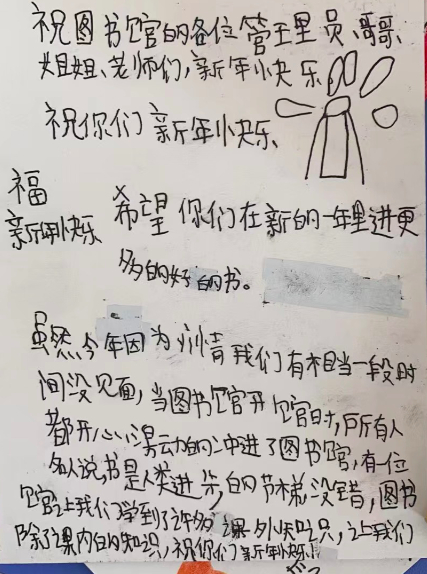 祝图书馆的各位管理员、哥哥、
姐姐、老师们,新年快乐
祝你们新年快乐、
福
新年快乐
希望你们在新的一年里进更
多的好的书。
虽然今年因为疫情我们有相当一段时
间没见面,当图书馆开馆时,所有人
都开心激动的冲进了图书馆,有一位
名人说,书是人类进步的阶梯,没错,图书
馆让我们学到了许多课外知识,让我们
除了课内的知识,祝你们新年快乐!